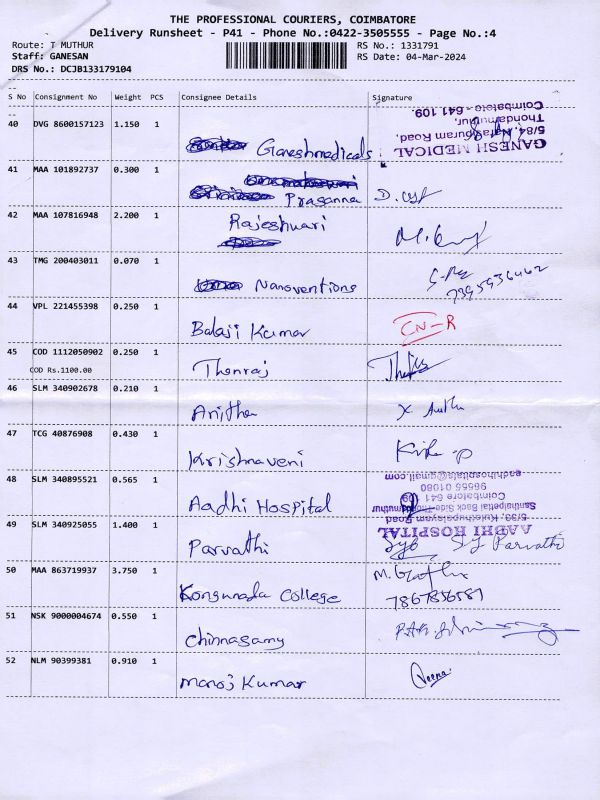 THE PROFESSIONAL COURIERS, COIMBATORE
Delivery Runsheet - P41 - Phone No.:0422-3505555 - Page No.:4
Route: T MUTHUR
Staff: GANESAN
DRS No.: DCJB133179104
RS No.: 1331791
RS Date: 04-Mar-2024
S No Consignment No Weight PCS Consignee Details Signature
40 DVG 8600157123 1.150 1 Ganeshmedicals
GANESH MEDICAL
Thondamuthur,
Coimbatore - 641 109.
41 MAA 101892737 0.300 1 Prasanna
42 MAA 107816948 2.200 1 Rajeshwari
43 TMG 200403011 0.070 1 Nanoventions
44 VPL 221455398 0.250 1 Balaji Kumar CN-R
45 COD 1112050902 0.250 1 Thenraj
COD Rs.1100.00
46 SLM 340902678 0.210 1 Anitha
47 TCG 40876908 0.430 1 Krishnaveni
48 SLM 340895521 0.565 1 Aadhi Hospital
AADHI HOSPITAL
Coimbatore 641 109
96555 01080
aadhihospitals@gmail.com
49 SLM 340925055 1.400 1 Parvathi S J Parvathi
50 MAA 863719937 3.750 1 Kongunadu College
51 NSK 9000004674 0.550 1 Chinnasamy
52 NLM 90399381 0.910 1 Manoj Kumar